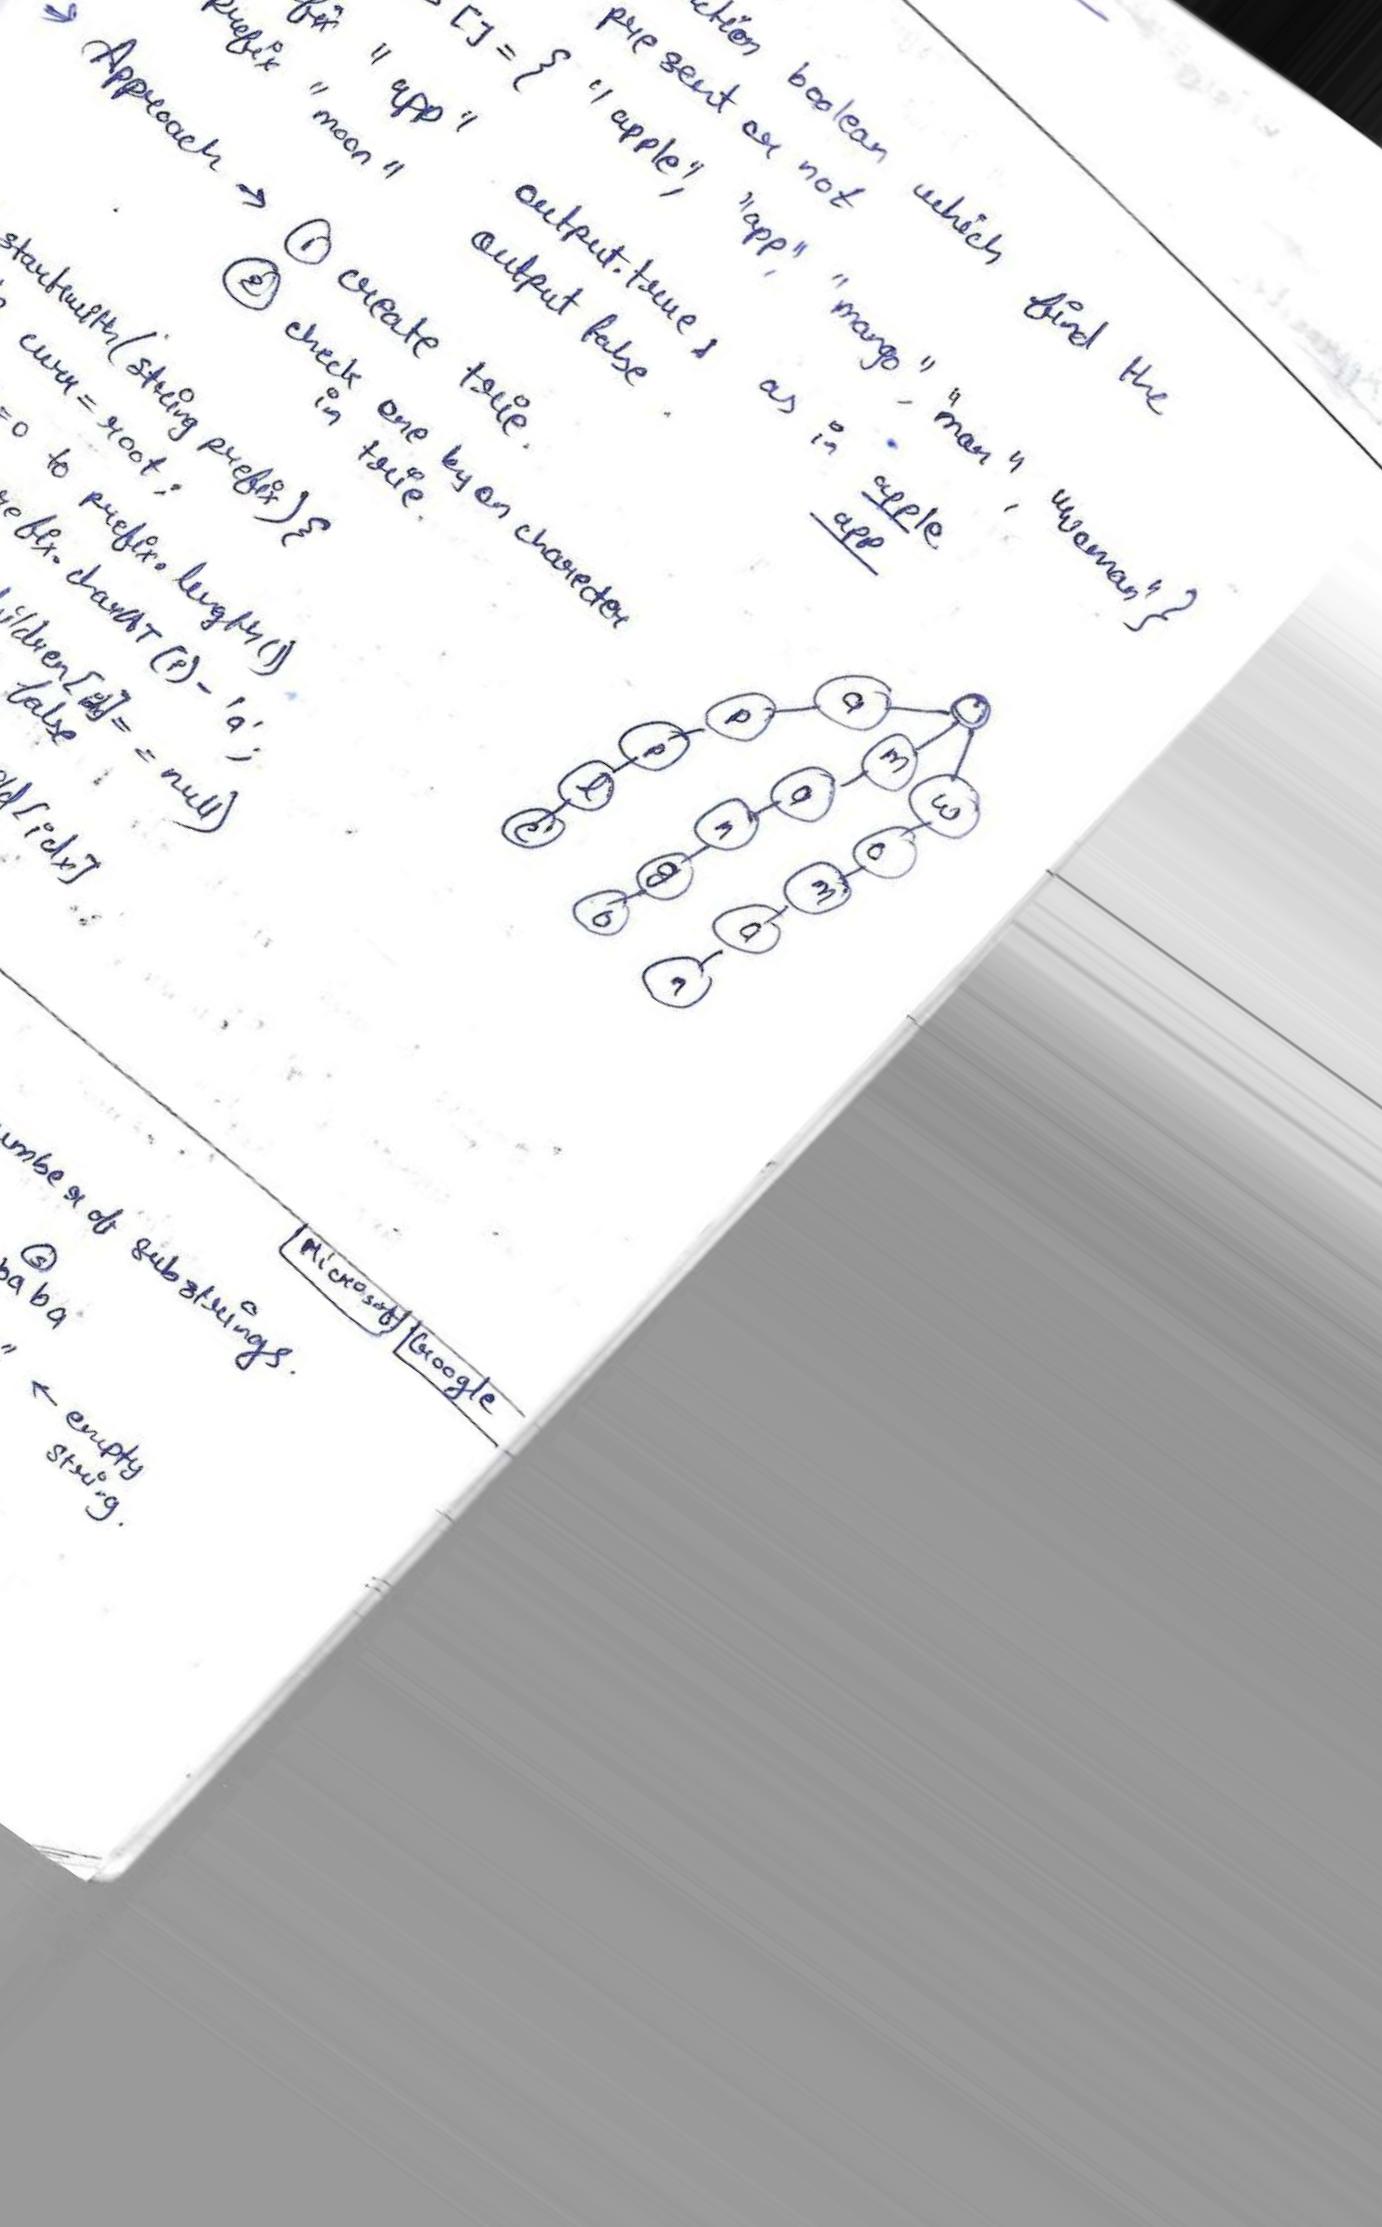 boolean which find the
present or not
[] = { "apple", "app", "mango", "man", "woman" }
"app" output. true, as in apple
app
prefix "moon" output false.
→ Approach → ① create trie.
② check one by on charecter
in trie.
startwith(string prefix) {
curr = root;
=0 to prefix.length()
charAT(i) - 'a';
== null)
false
[idx]
a p p l e
m a n g o
w o m a n
of substrings.
Microsoft Google
⑤
baba
" ← empty
string.